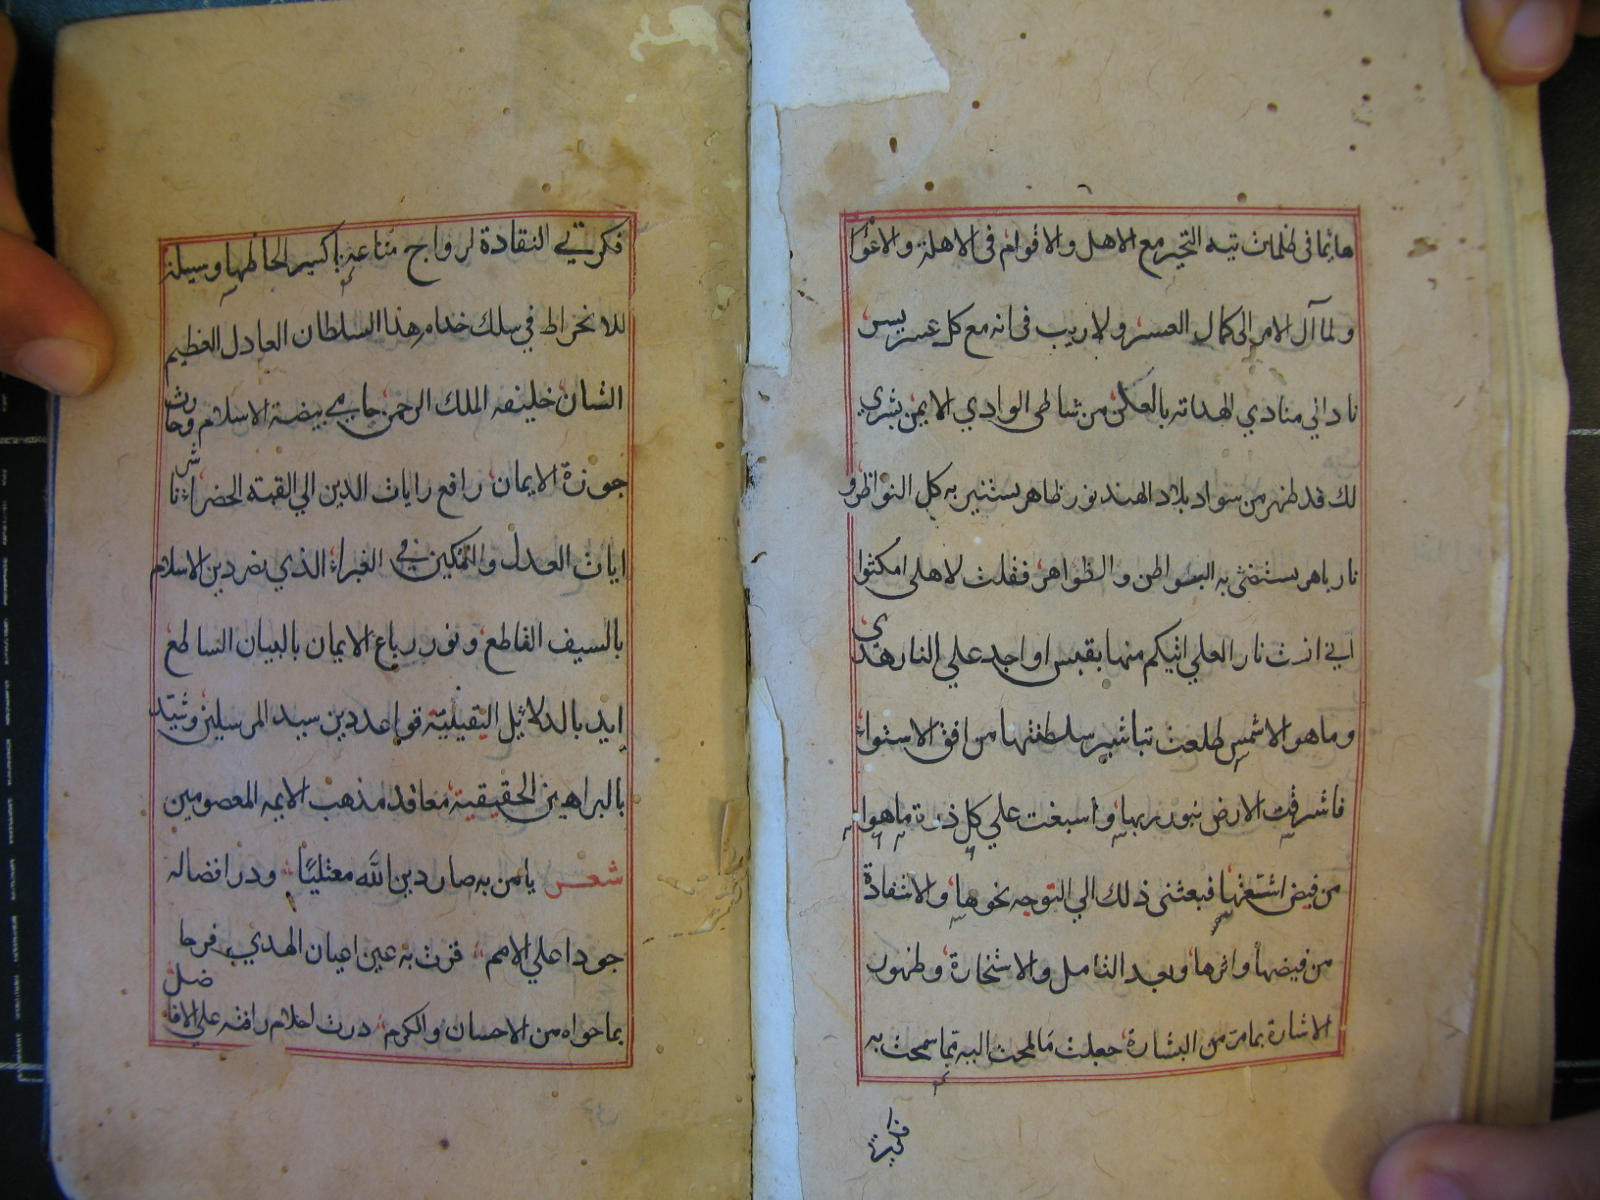 هائما فى ظلمات تيه التحير مع الاهل والاقوام فى الاهلة والاعوا
ولما آل الامر الى كمال العسر ولا ريب فى انه مع كل عسر يسر
نادانى منادي الهداية بالعكن من شاطى الوادي الايمن بشري
لك قد ظهر من سواد بلاد الهند نور ظاهر يستنير به كل النواظر و
نار باهر يستضئ به البواطن والظواهر فقلت لاهلى امكثوا
اني انست نار العلي اتيكم منها بقبس او اجد علي النار هدى
وما هو الا شمس طلعت تباشير سلطنتها من افق الاستواء
فاشرقت الارض بنور ربها واسبغت علي كل ذرة ما هو
من فيض اشعتها فبعثنى ذلك الي التوجه نحوها والاستفادة
من فيضها واثرها وبعد التامل والاستخارة وظهور
الاشارة بما مر من البشارة جعلت ما لمحت اليه بما سمحت به
فكرتي
فكرتي النقادة لرواج متاعي باكسير الحاظها وسيلة
للانخراط في سلك خدام هذا السلطان العادل العظيم
الشان خليفه الملك الرحمن حامي بيضة الاسلام وحارث
حوزة الايمان رافع رايات الدين الي القبة الخضراء ناشر
ايات العدل والتمكين في الغبراء الذي نصر دين الاسلام
بالسيف القاطع ونور رباع الايمان بالبيان الساطع
ايد بالدلائل النقيلية قواعد دين سيد المرسلين وشيد
بالبراهين الحقيقية معاقد مذهب الايمه المعصومين
شعر يا من به صار دين الله معتليًا ودر افضاله
جودا علي الامم قرت به عين اعيان الهدي فرحا
بما حواه من الاحسان والكرم درت احلام رافته علي الافاضل